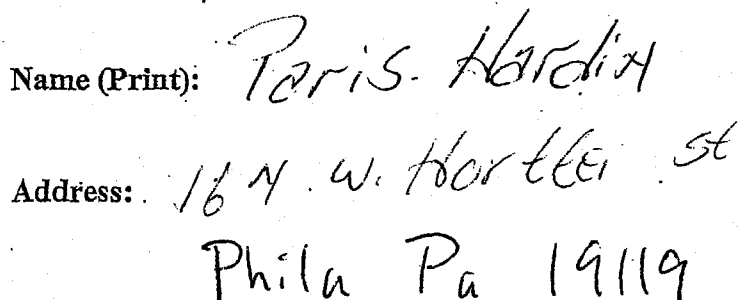 Name (Print): Paris. Hardin
Address: 16 N. W. Hortter St
Phila Pa 19119